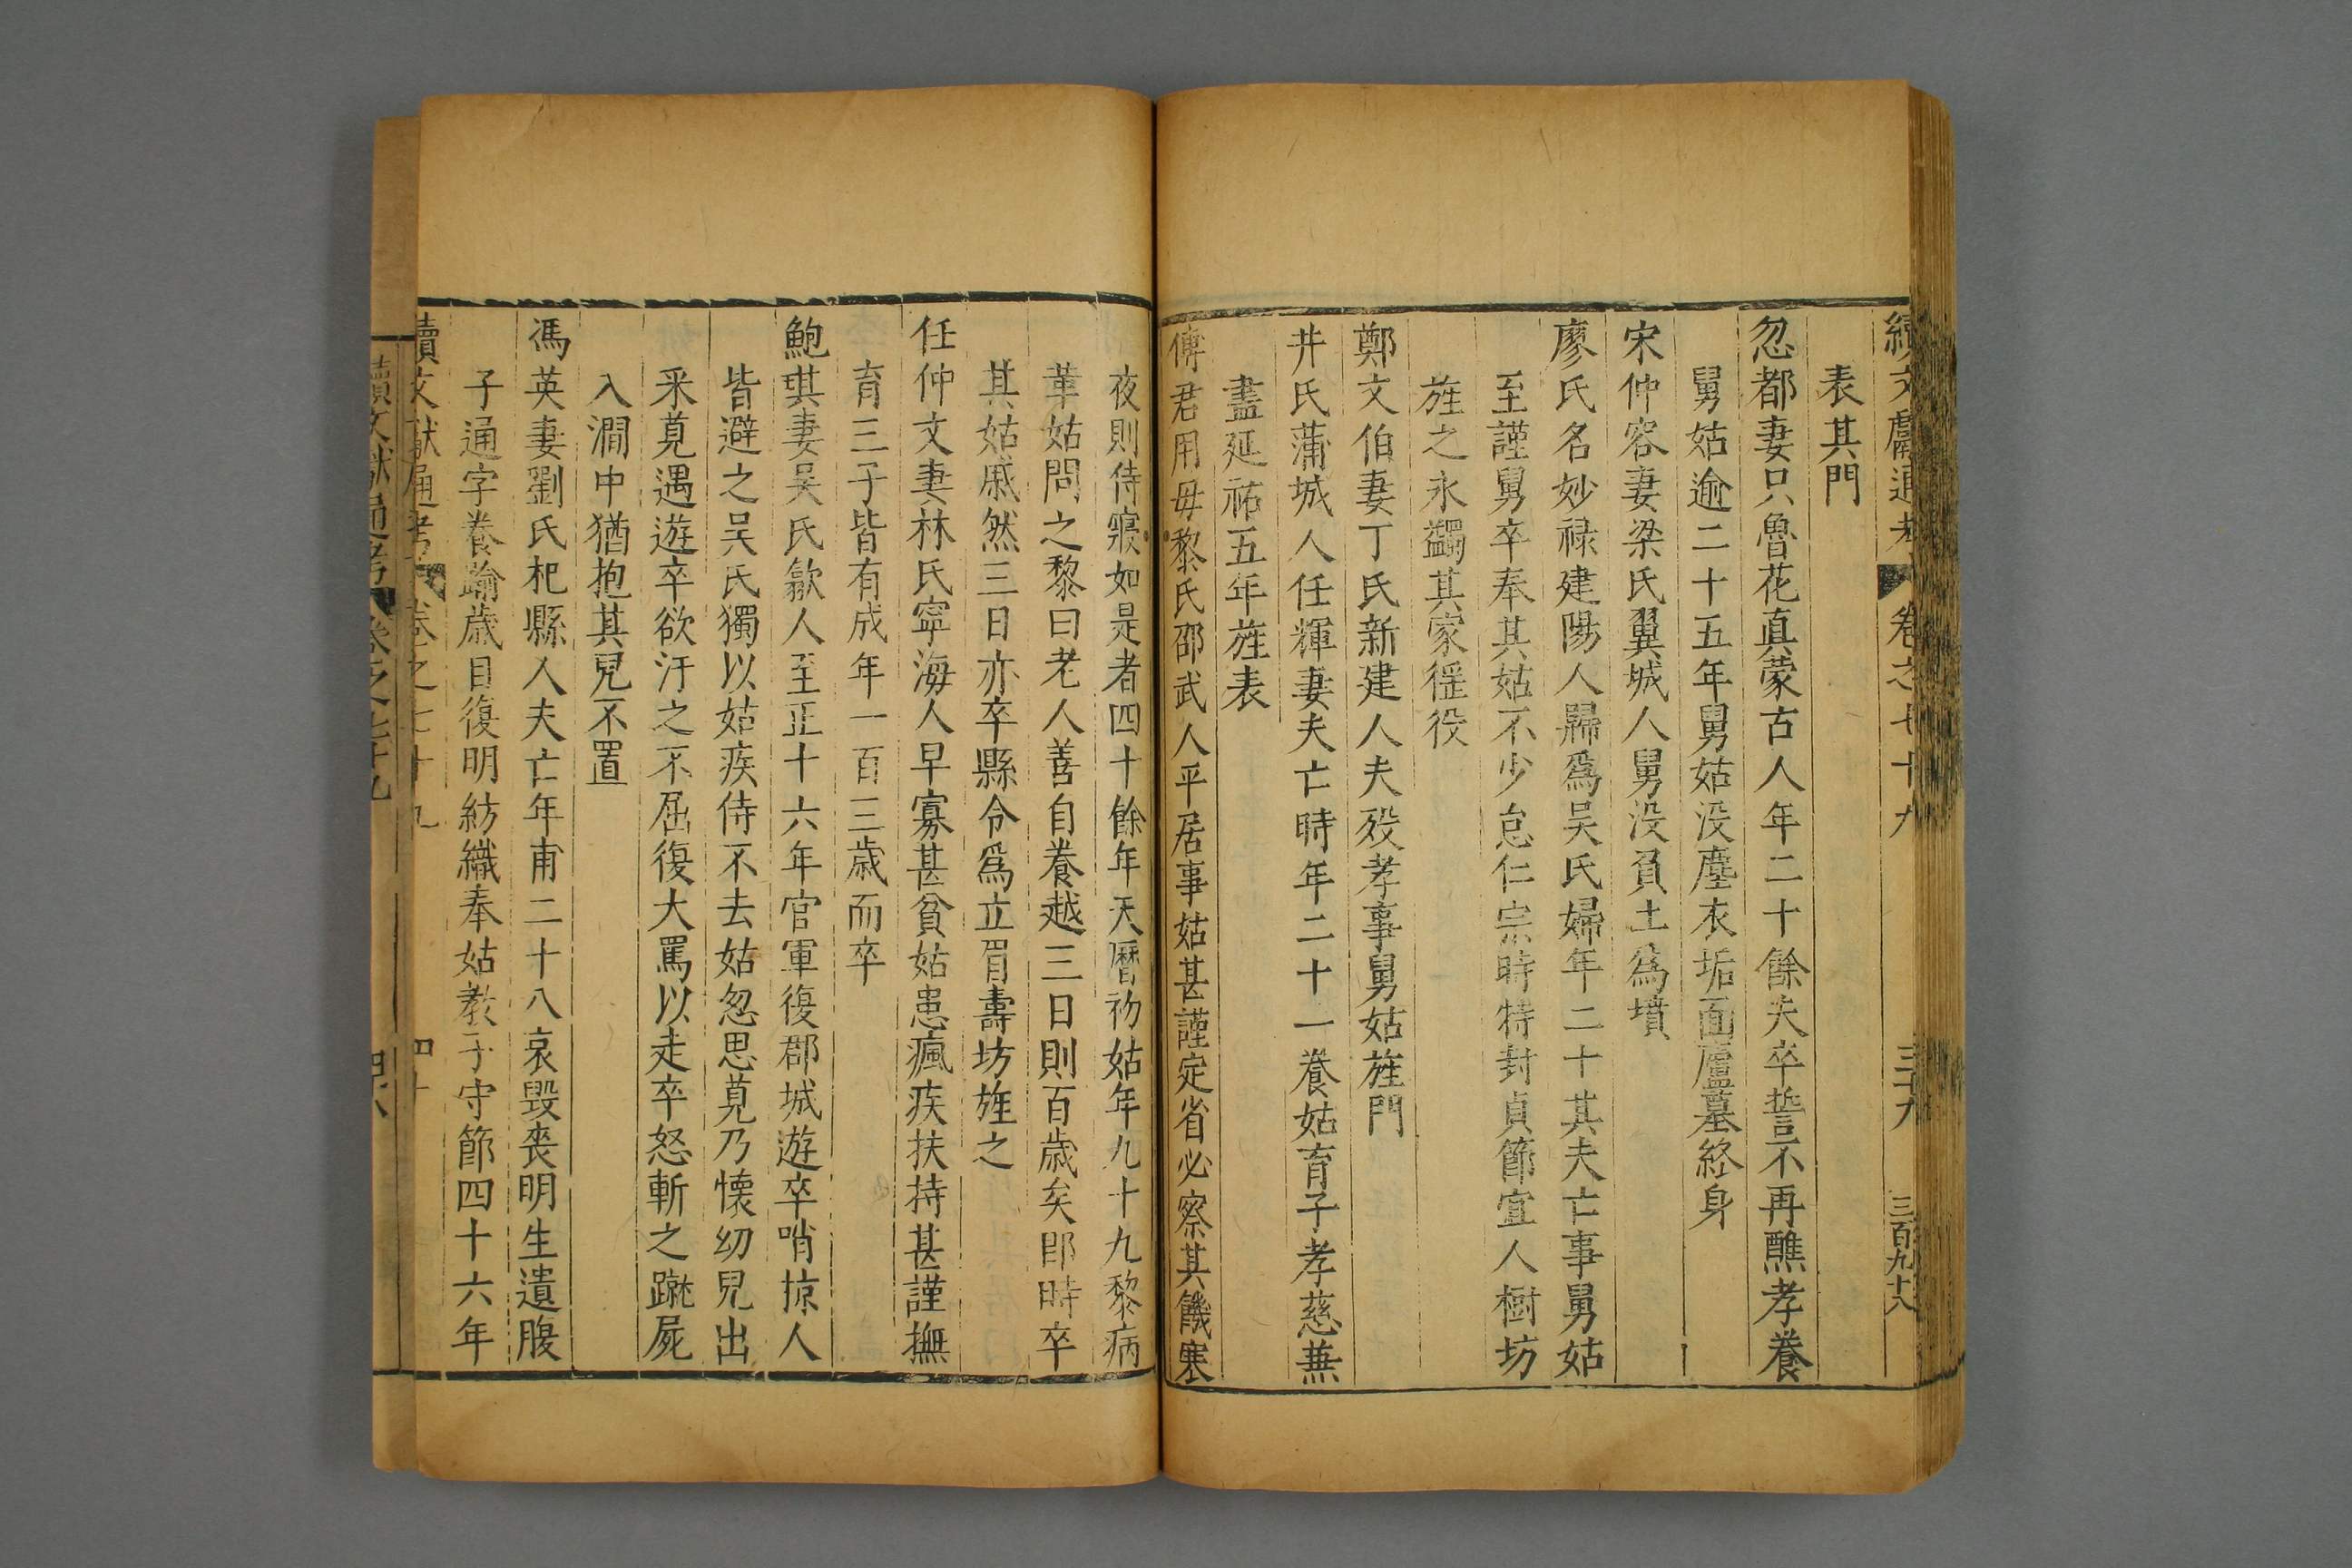 續文獻通考 卷之七十九 三十九 三百九十八
表其門
忽都妻只魯花真蒙古人年二十餘夫卒誓不再醮孝養
舅姑逾二十五年舅姑没塵衣垢面廬墓終身
宋仲容妻梁氏翼城人舅没負土爲墳
廖氏名妙禄建陽人歸爲吴氏婦年二十其夫亡事舅姑
至謹舅卒奉其姑不少怠仁宗時特封貞節宜人樹坊
旌之永蠲其家徭役
鄭文伯妻丁氏新建人夫殁孝事舅姑旌門
井氏蒲城人任輝妻夫亡時年二十一養姑育子孝慈兼
盡延祐五年旌表
傅君用母黎氏邵武人平居事姑甚謹定省必察其饑寒
夜則侍寢如是者四十餘年天曆初姑年九十九黎病
革姑問之黎曰老人善自養越三日則百歲矣即時卒
其姑戚然三日亦卒縣令爲立眉壽坊旌之
任仲文妻林氏寧海人早寡甚貧姑患瘋疾扶持甚謹撫
育三子皆有成年一百三歲而卒
鮑琪妻吴氏歙人至正十六年官軍復郡城遊卒哨掠人
皆避之吴氏獨以姑疾侍不去姑忽思莧乃懷幼兒出
采莧遇遊卒欲汙之不屈復大罵以走卒怒斬之蹴屍
入澗中猶抱其兒不置
馮英妻劉氏杞縣人夫亡年甫二十八哀毁喪明生遺腹
子通字養踰歲目復明紡織奉姑教子守節四十六年
續文獻通考 卷之七十九 四十
續文獻通考 卷之七十九